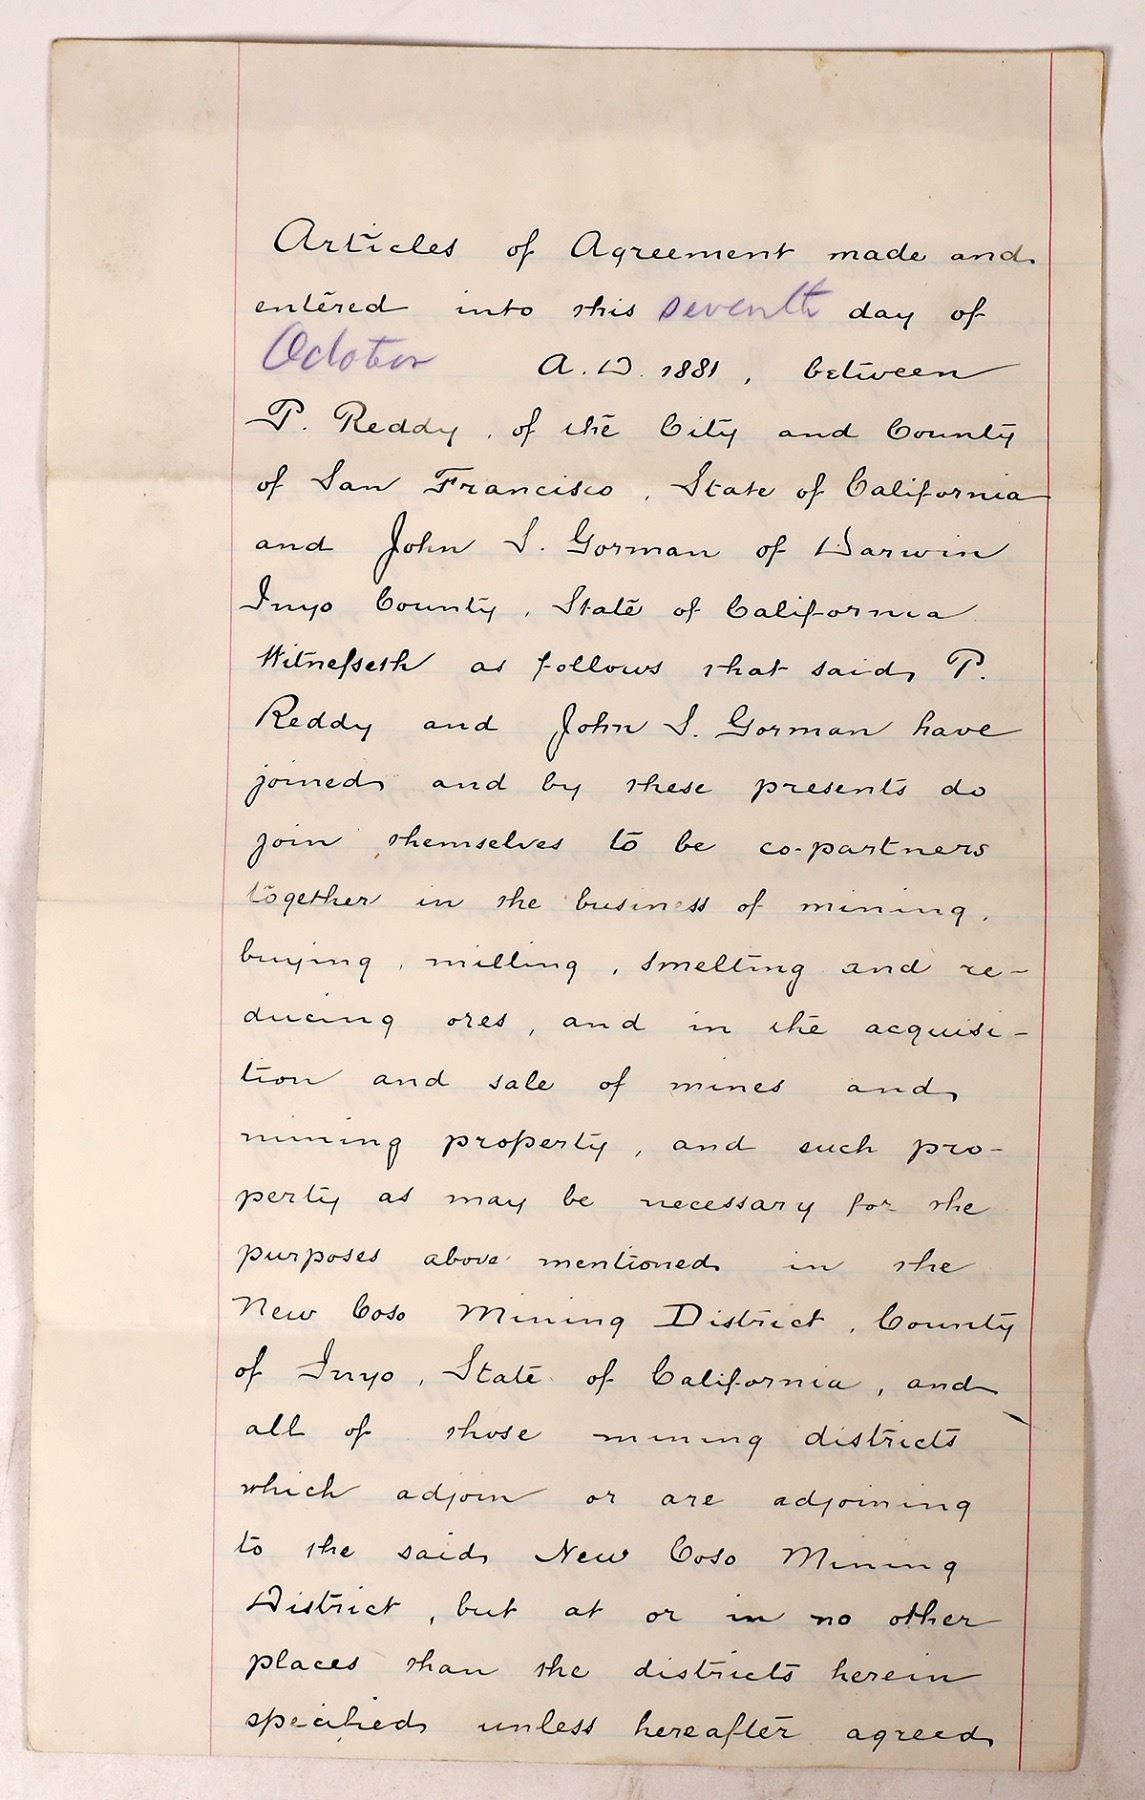 Articles of Agreement made and
entered into this seventh day of
October A.D. 1881, between
P. Reddy, of the City and County
of San Francisco, State of California
and John S. Gorman of Darwin
Inyo County, State of California
Witnesseth as follows that said P.
Reddy and John S. Gorman have
joined and by these presents do
join themselves to be co-partners
together in the business of mining,
buying, milling, smelting and re-
ducing ores, and in the acquisi-
tion and sale of mines and
mining property, and such pro-
perty as may be necessary for the
purposes above mentioned in the
New Coso Mining District, County
of Inyo, State of California, and
all of those mining districts
which adjoin or are adjoining
to the said New Coso Mining
District, but at or in no other
places than the districts herein
specified unless hereafter agreed